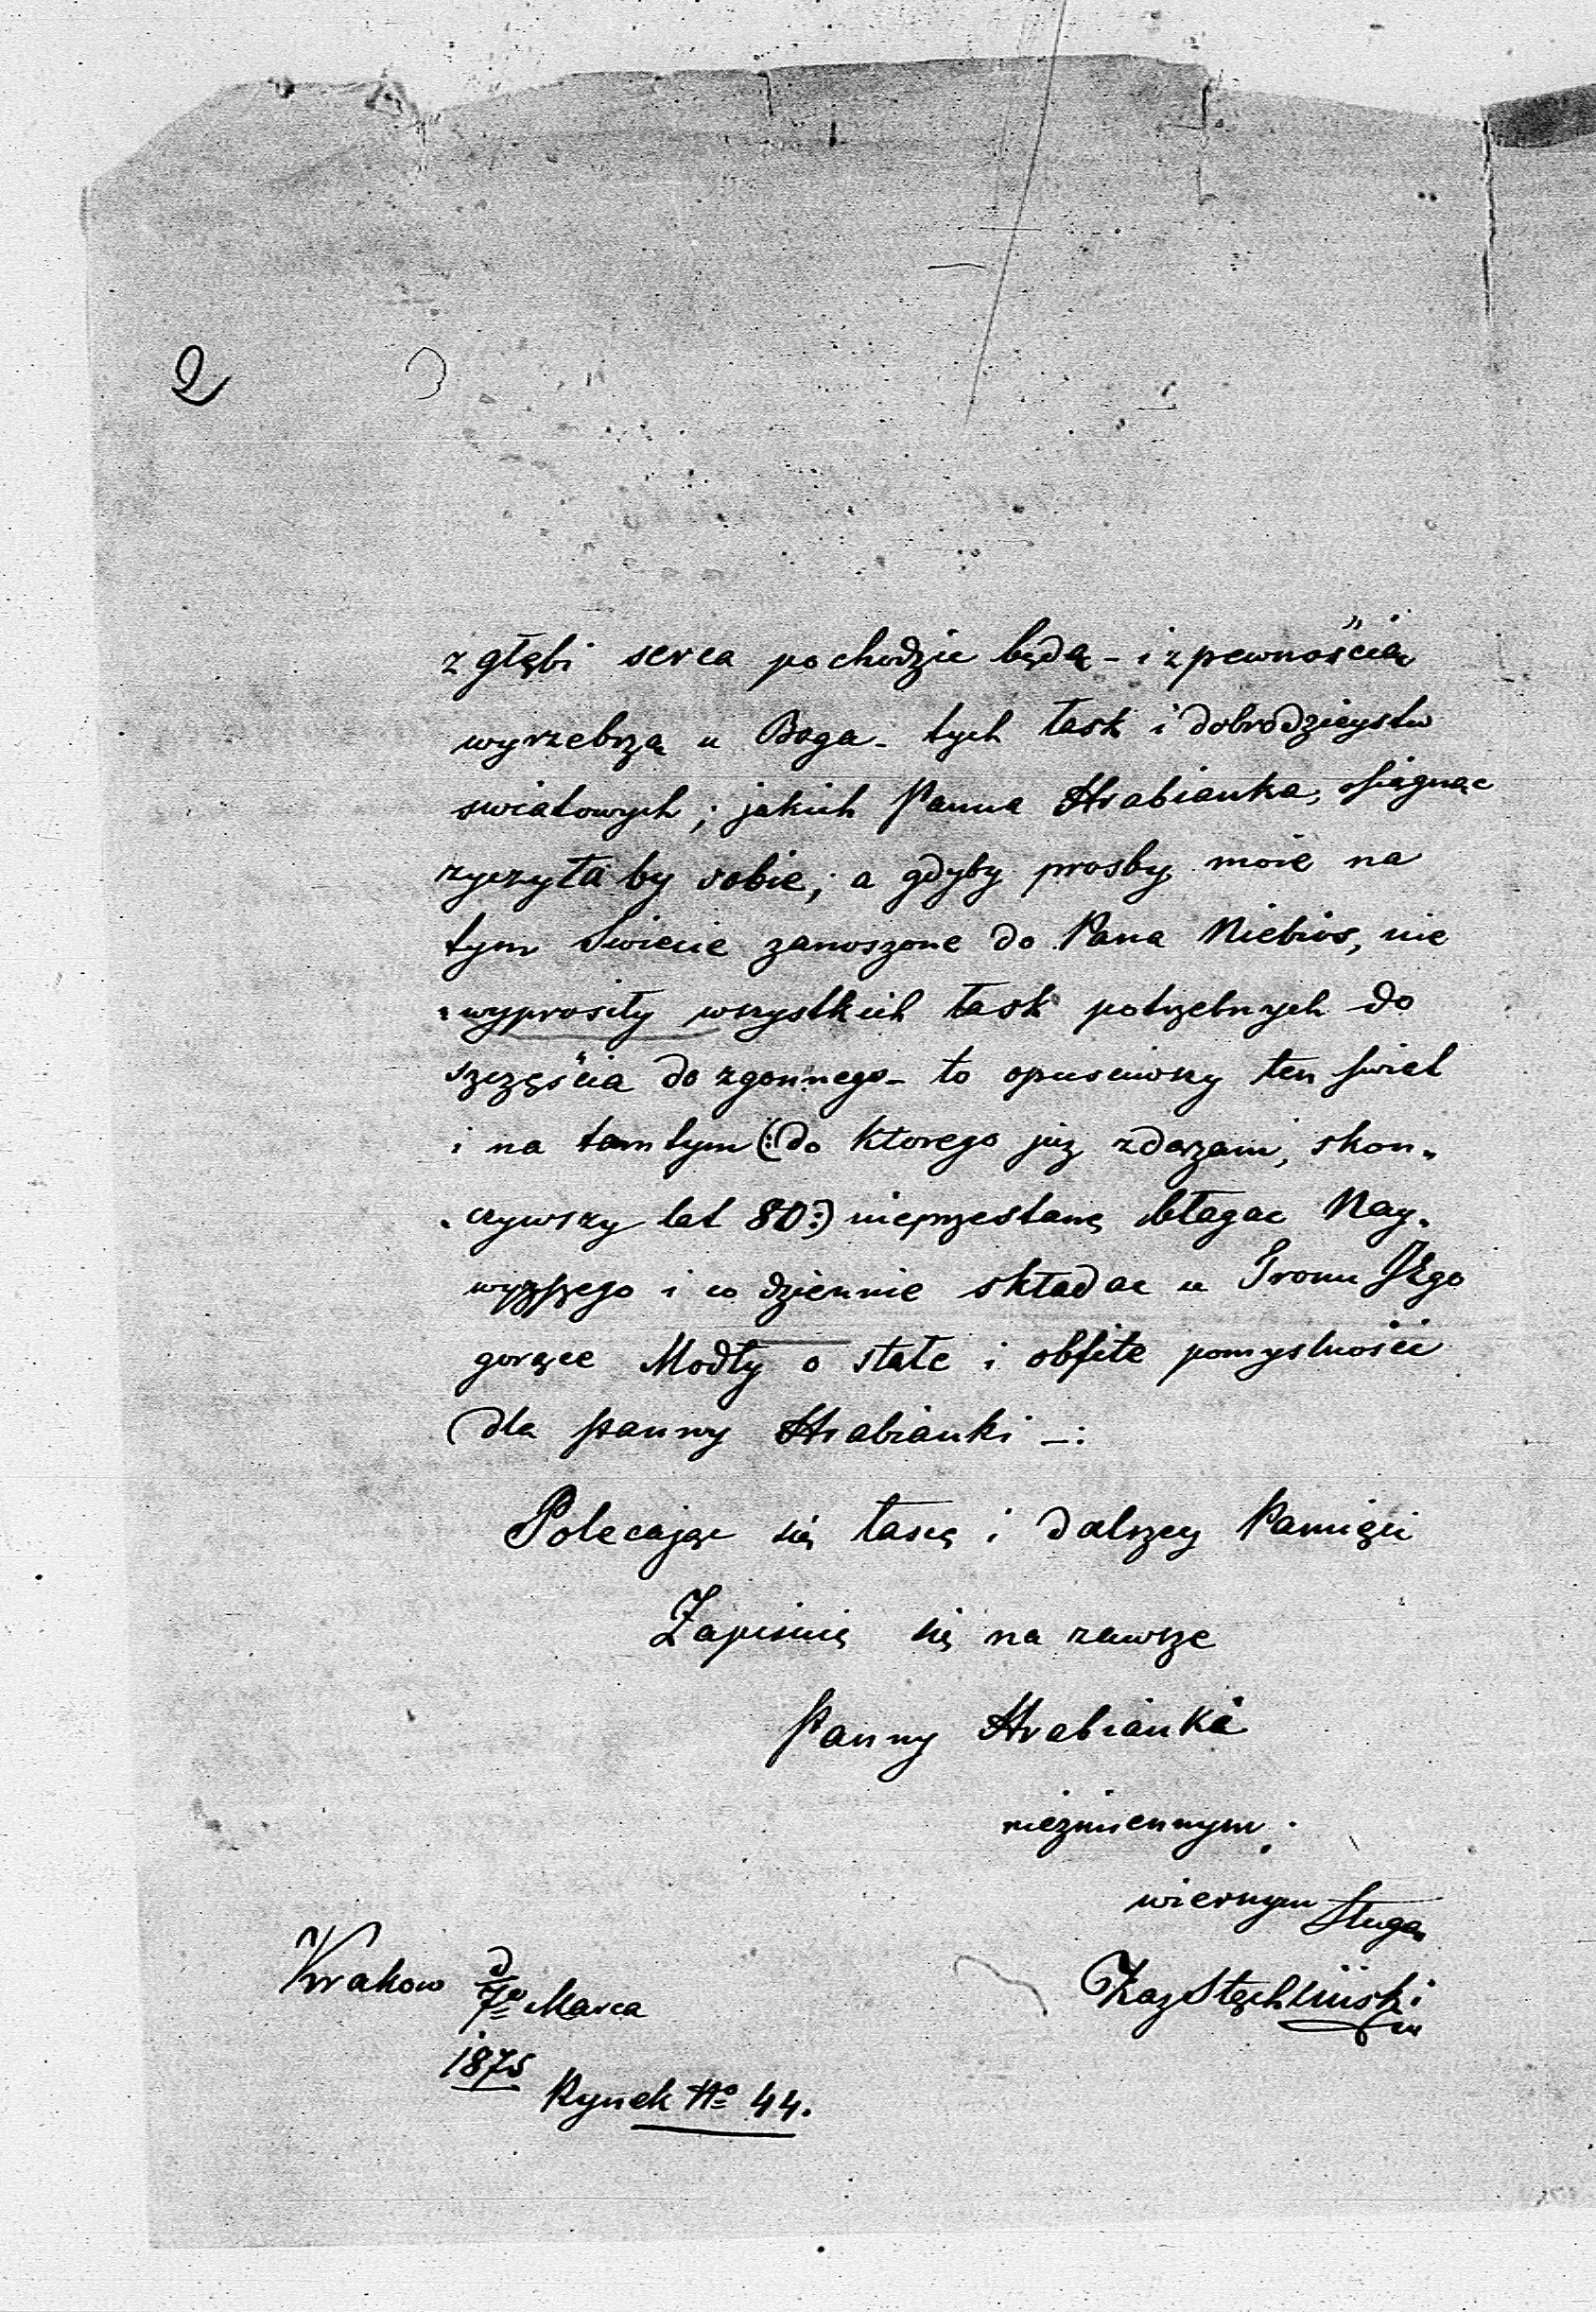 2
z głębi serca pochodzic będą - i z pewnością
wyrzebrzą u Boga - tych łask i dobrodzieystw
swiatowych; jakich Panna Hrabianka, osiągnąc
zyczyła by sobie; a gdyby prosby moie na
tym Swiecie zanoszone do Pana Niebios, nie
wyprosiły wszystkich łask potrzebnych do
szczęścia do zgonnego - to opusciwszy ten swiat
i na tamtym (: do ktorego już zdązam, skon„
„czywszy lat 80 :) nieprzestanę błagac Nay„
wyzszego i co dziennie składac u Tronu JEgo
gorące Modły o stałe i obfite pomyslności
dla Panny Hrabianki -:
Polecając się łascę i dalszey Pamięci
Zapisuię się na zawsze
Panny Hrabianki
niezmiennym.
wiernym Sługą
Kaz Stęchliński
Krakow d 7go Marca
1875
Rynek No 44.